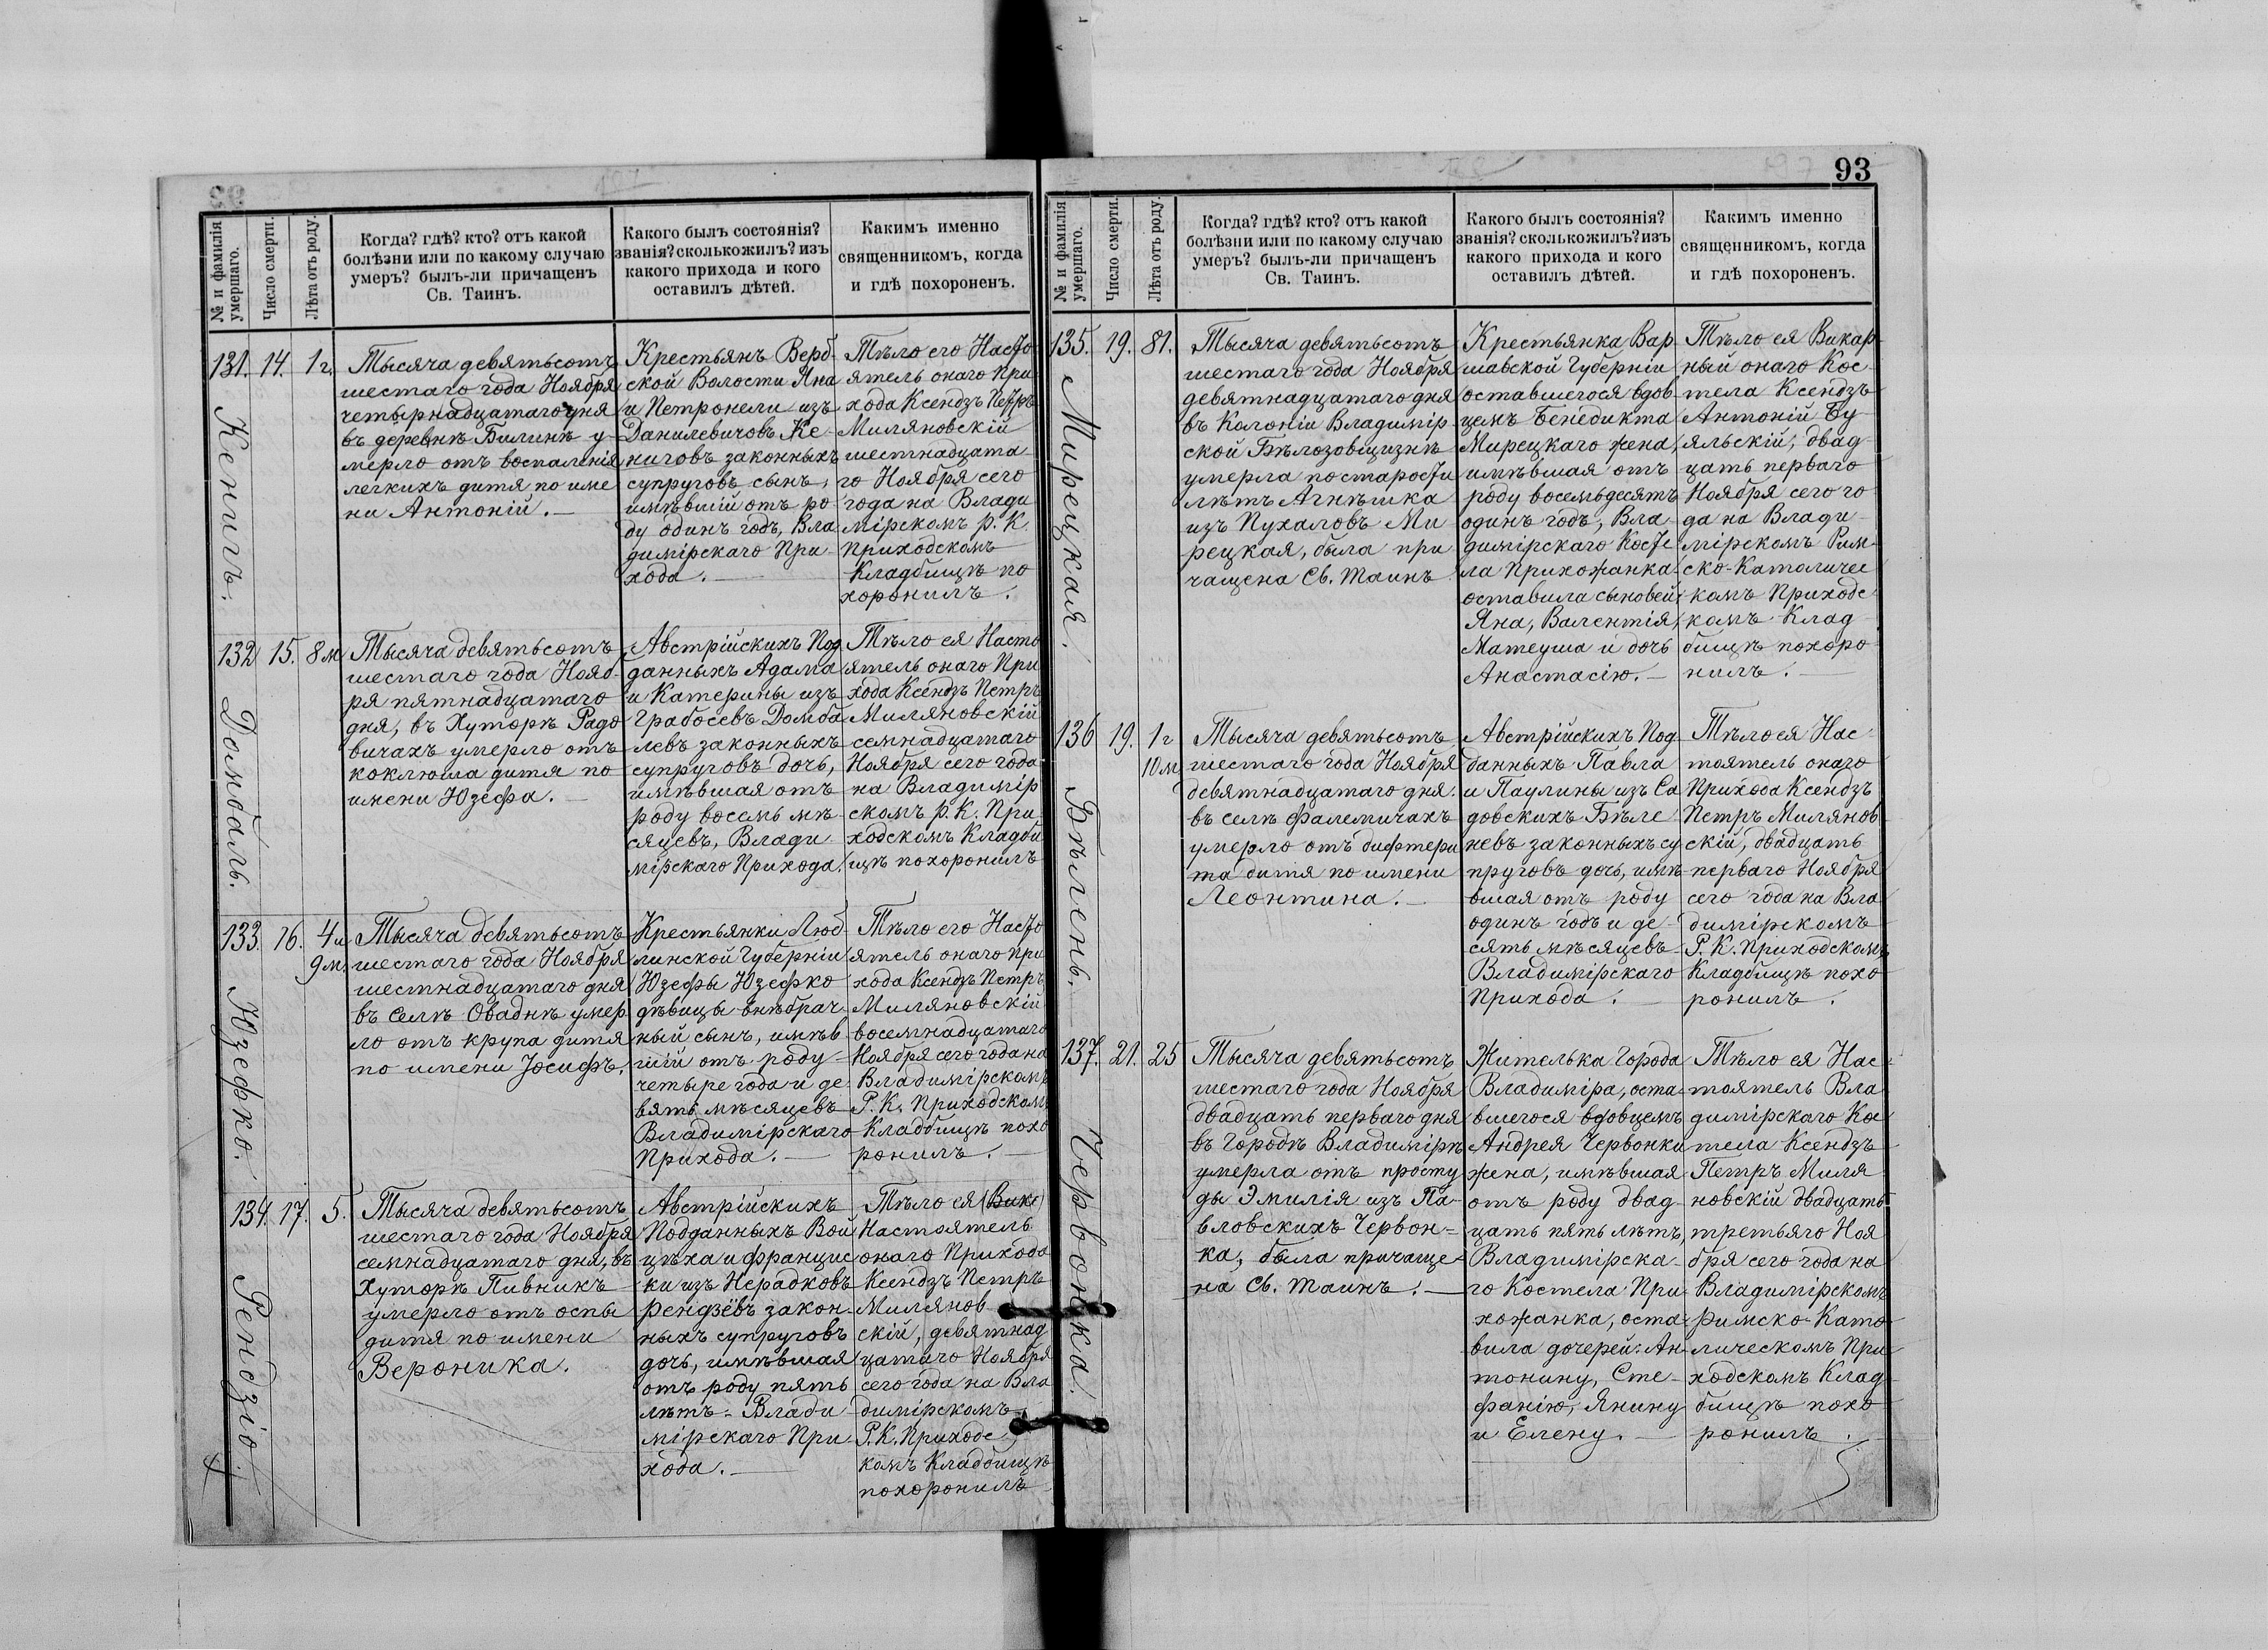 93
№ и фамилія умершаго.
Число смерти.
Лѣта отъ роду.
Когда? гдѣ? кто? отъ какой
болѣзни или по какому случаю
умеръ? былъ-ли причащенъ
Св. Таинъ.
Какого былъ состоянія?
званія? сколько жилъ? изъ
какого прихода и кого
оставилъ дѣтей.
Какимъ именно
священникомъ, когда
и гдѣ похороненъ.
131. 14. 1 г.
Кеничъ.
Тысяча девятьсотъ
шестаго года Ноября
четырнадцатаго дня
въ деревнѣ Билинѣ у-
мерло отъ воспаленія
легкихъ дитя по име
ни Антоній.—
Крестьянъ Верб-
ской Волости Яна
и Петронели изъ
Данилевичовъ Ке-
ничовъ законныхъ
супруговъ сынъ,
имѣвшій отъ ро
ду одинъ годъ, Вла
димірскаго При-
хода.—
Тѣло его Насто
ятель онаго При
хода Ксендзъ Петръ
Миляновскій
шестнадцата
го Ноября сего
года на Влади
мірскомъ Р. К.
Приходскомъ
Кладбищѣ по
хоронилъ.
132 15. 8 м
Домбаль.
Тысяча девятьсотъ
шестаго года Нояб-
ря пятнадцатаго
дня, въ Хуторѣ Радо
вичахъ умерло отъ
коклюша дитя по
имени Юзефа.—
Австрійскихъ Под
данныхъ Адама
и Катерины изъ
Грабосевъ Домба
левъ законныхъ
супруговъ дочь,
имѣвшая отъ
роду восемь мѣ-
сяцевъ, Влади
мірскаго Прихода.
Тѣло ея Насто
ятель онаго При
хода Ксендзъ Петръ
Миляновскій
семнадцатаго
Ноября сего года
на Владимір
скомъ Р. К. При
ходскомъ Кладби
щѣ похоронилъ
133. 16. 4 г
9 м.
Юзефко.
Тысяча девятьсотъ
шестаго года Ноября
шестнадцатаго дня
въ селѣ Оваднѣ умер
ло отъ крупа дитя
по имени Іосифъ.
Крестьянки Люб-
линской Губерніи
Юзефы Юзефко
дѣвицы внѣбрач-
ный сынъ, имѣв
шій отъ роду
четыре года и де
вять мѣсяцевъ
Владимірскаго
Прихода.—
Тѣло его Насто
ятель онаго При
хода Ксендзъ Петръ
Миляновскій
восемнадцатаго
Ноября сего года на
Владимірскомъ
Р. К. Приходскомъ
Кладбищѣ похо
ронилъ.—
134. 17. 5.
Рендзіо.
Тысяча девятьсотъ
шестаго года Ноября
семнадцатаго дня, въ
Хуторѣ Пивникѣ
умерло отъ оспы
дитя по имени
Вероника.
Австрійскихъ
Подданныхъ Вой
цѣха и Францис
ки изъ Нерадковъ
Рендзёвъ закон-
ныхъ супруговъ
дочь, имѣвшая
отъ роду пять
лѣтъ- Влади
мірскаго При
хода.—
Тѣло ея (Вик)
Настоятель
онаго Прихода
Ксендзъ Петръ
Милянов
скій, девятнад
цатаго Ноября
сего года на Вла
димірскомъ
Р. К. Приходс
комъ Кладбищѣ
похоронилъ
№ и фамилія умершаго.
Число смерти.
Лѣта отъ роду.
Когда? гдѣ? кто? отъ какой
болѣзни или по какому случаю
умеръ? былъ-ли причащенъ
Св. Таинъ.
Какого былъ состоянія?
званія? сколько жилъ? изъ
какого прихода и кого
оставилъ дѣтей.
Какимъ именно
священникомъ, когда
и гдѣ похороненъ.
135. 19. 81.
Мирецкая.
Тысяча девятьсотъ
шестаго года Ноября
девятнадцатаго дня
въ Колоніи Владимір-
ской Бѣлозовщизнѣ
умерла по старости
лѣтъ Агнѣшка
изъ Пухаловъ Ми
рецкая, была при
чащена Св. Таинъ
Крестьянка Вар
шавской Губерніи
оставшегося вдов
цемъ Бенедикта
Мирецкаго жена,
имѣвшая отъ
роду восемьдесятъ
одинъ годъ, Вла-
димірскаго Косте
ла Прихожанка-
оставила сыновей:
Яна, Валентія,
Матеуша и дочь
Анастасію.—
Тѣло ея Викар
ный онаго Кос-
тела Ксендзъ
Антоній Бу-
яльскій, двад
цать перваго
Ноября сего го
да на Влади-
мірскомъ Рим-
ско-Католичес
комъ Приходс-
комъ Клад-
бищѣ похоро
нилъ.—
136 19. 1 г
10 м.
Бѣлень.
Тысяча девятьсотъ
шестаго года Ноября
девятнадцатаго дня.
въ селѣ Фалемичахъ
умерло отъ дифтери
та дитя по имени
Леонтина.—
Австрійскихъ Под
данныхъ Павла
и Паулины изъ Са
довскихъ Бѣле
невъ законныхъ су
пруговъ дочь, имѣ-
вшая отъ роду
одинъ годъ и де-
сять мѣсяцевъ-
Владимірскаго
Прихода.—
Тѣло ея Нас-
тоятель онаго
Прихода Ксендзъ
Петръ Милянов
скій, двадцать
перваго Ноября
сего года на Вла
димірскомъ
Р. К. Приходскомъ
Кладбищѣ похо
ронилъ.
137. 21. 25
Червонка.
Тысяча девятьсотъ
шестаго года Ноября
двадцать перваго дня
въ Городѣ Владимірѣ
умерла отъ просту
ды Эмилія изъ Па-
вловскихъ Червон-
ка, была причаще-
на Св. Таинъ.—
Жителька Города
Владиміра, оста-
вшегося вдовцемъ
Андрея Червонки
жена, имѣвшая
отъ роду двад-
цать пять лѣтъ,
Владимірска-
го Костела При
хожанка, оста-
вила дочерей: Ан-
тонину, Сте-
фанію, Янину
и Елену.—
Тѣло ея Нас-
тоятель Вла
димірскаго Кос
тела Ксендзъ
Петръ Миля
новскій двадцать
третьяго Ноя
бря сего года на
Владимірскомъ
Римско-Като
лическомъ При
ходскомъ Клад
бищѣ похо
ронилъ.